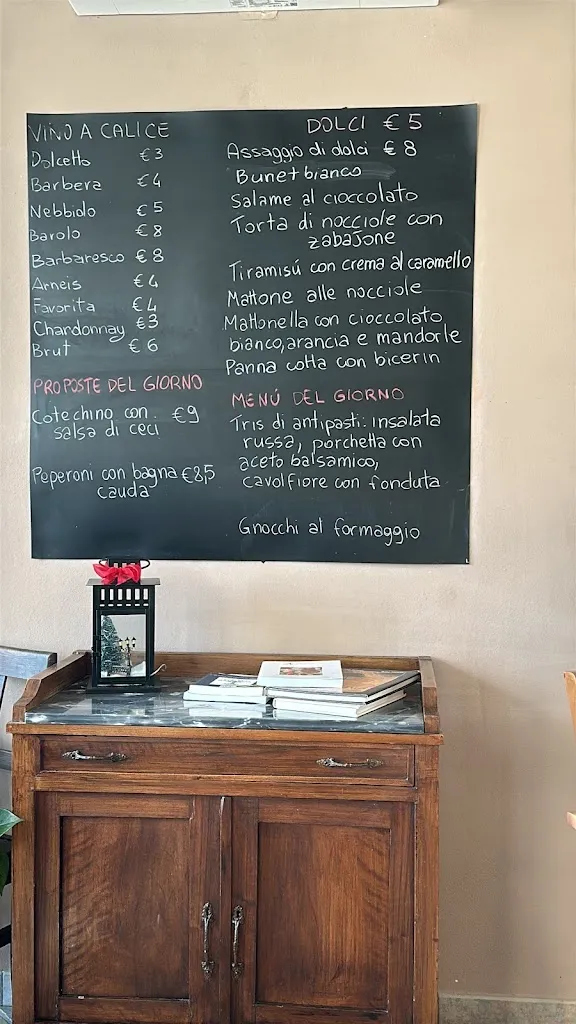 VINO A CALICE
Dolcetto €3
Barbera €4
Nebbiolo €5
Barolo €8
Barbaresco €8
Arneis €4
Favorita €4
Chardonnay €3
Brut €6
PROPOSTE DEL GIORNO
Cotechino con €9
salsa di ceci
Peperoni con bagna €8,5
cauda
DOLCI €5
Assaggio di dolci €8
Bunet bianco
Salame al cioccolato
Torta di nocciole con
zabajone
Tiramisú con crema al caramello
Mattone alle nocciole
Mattonella con cioccolato
bianco, arancia e mandorle
Panna cotta con bicerin
MENÚ DEL GIORNO
Tris di antipasti: insalata
russa, porchetta con
aceto balsamico,
cavolfiore con fonduta
Gnocchi al formaggio